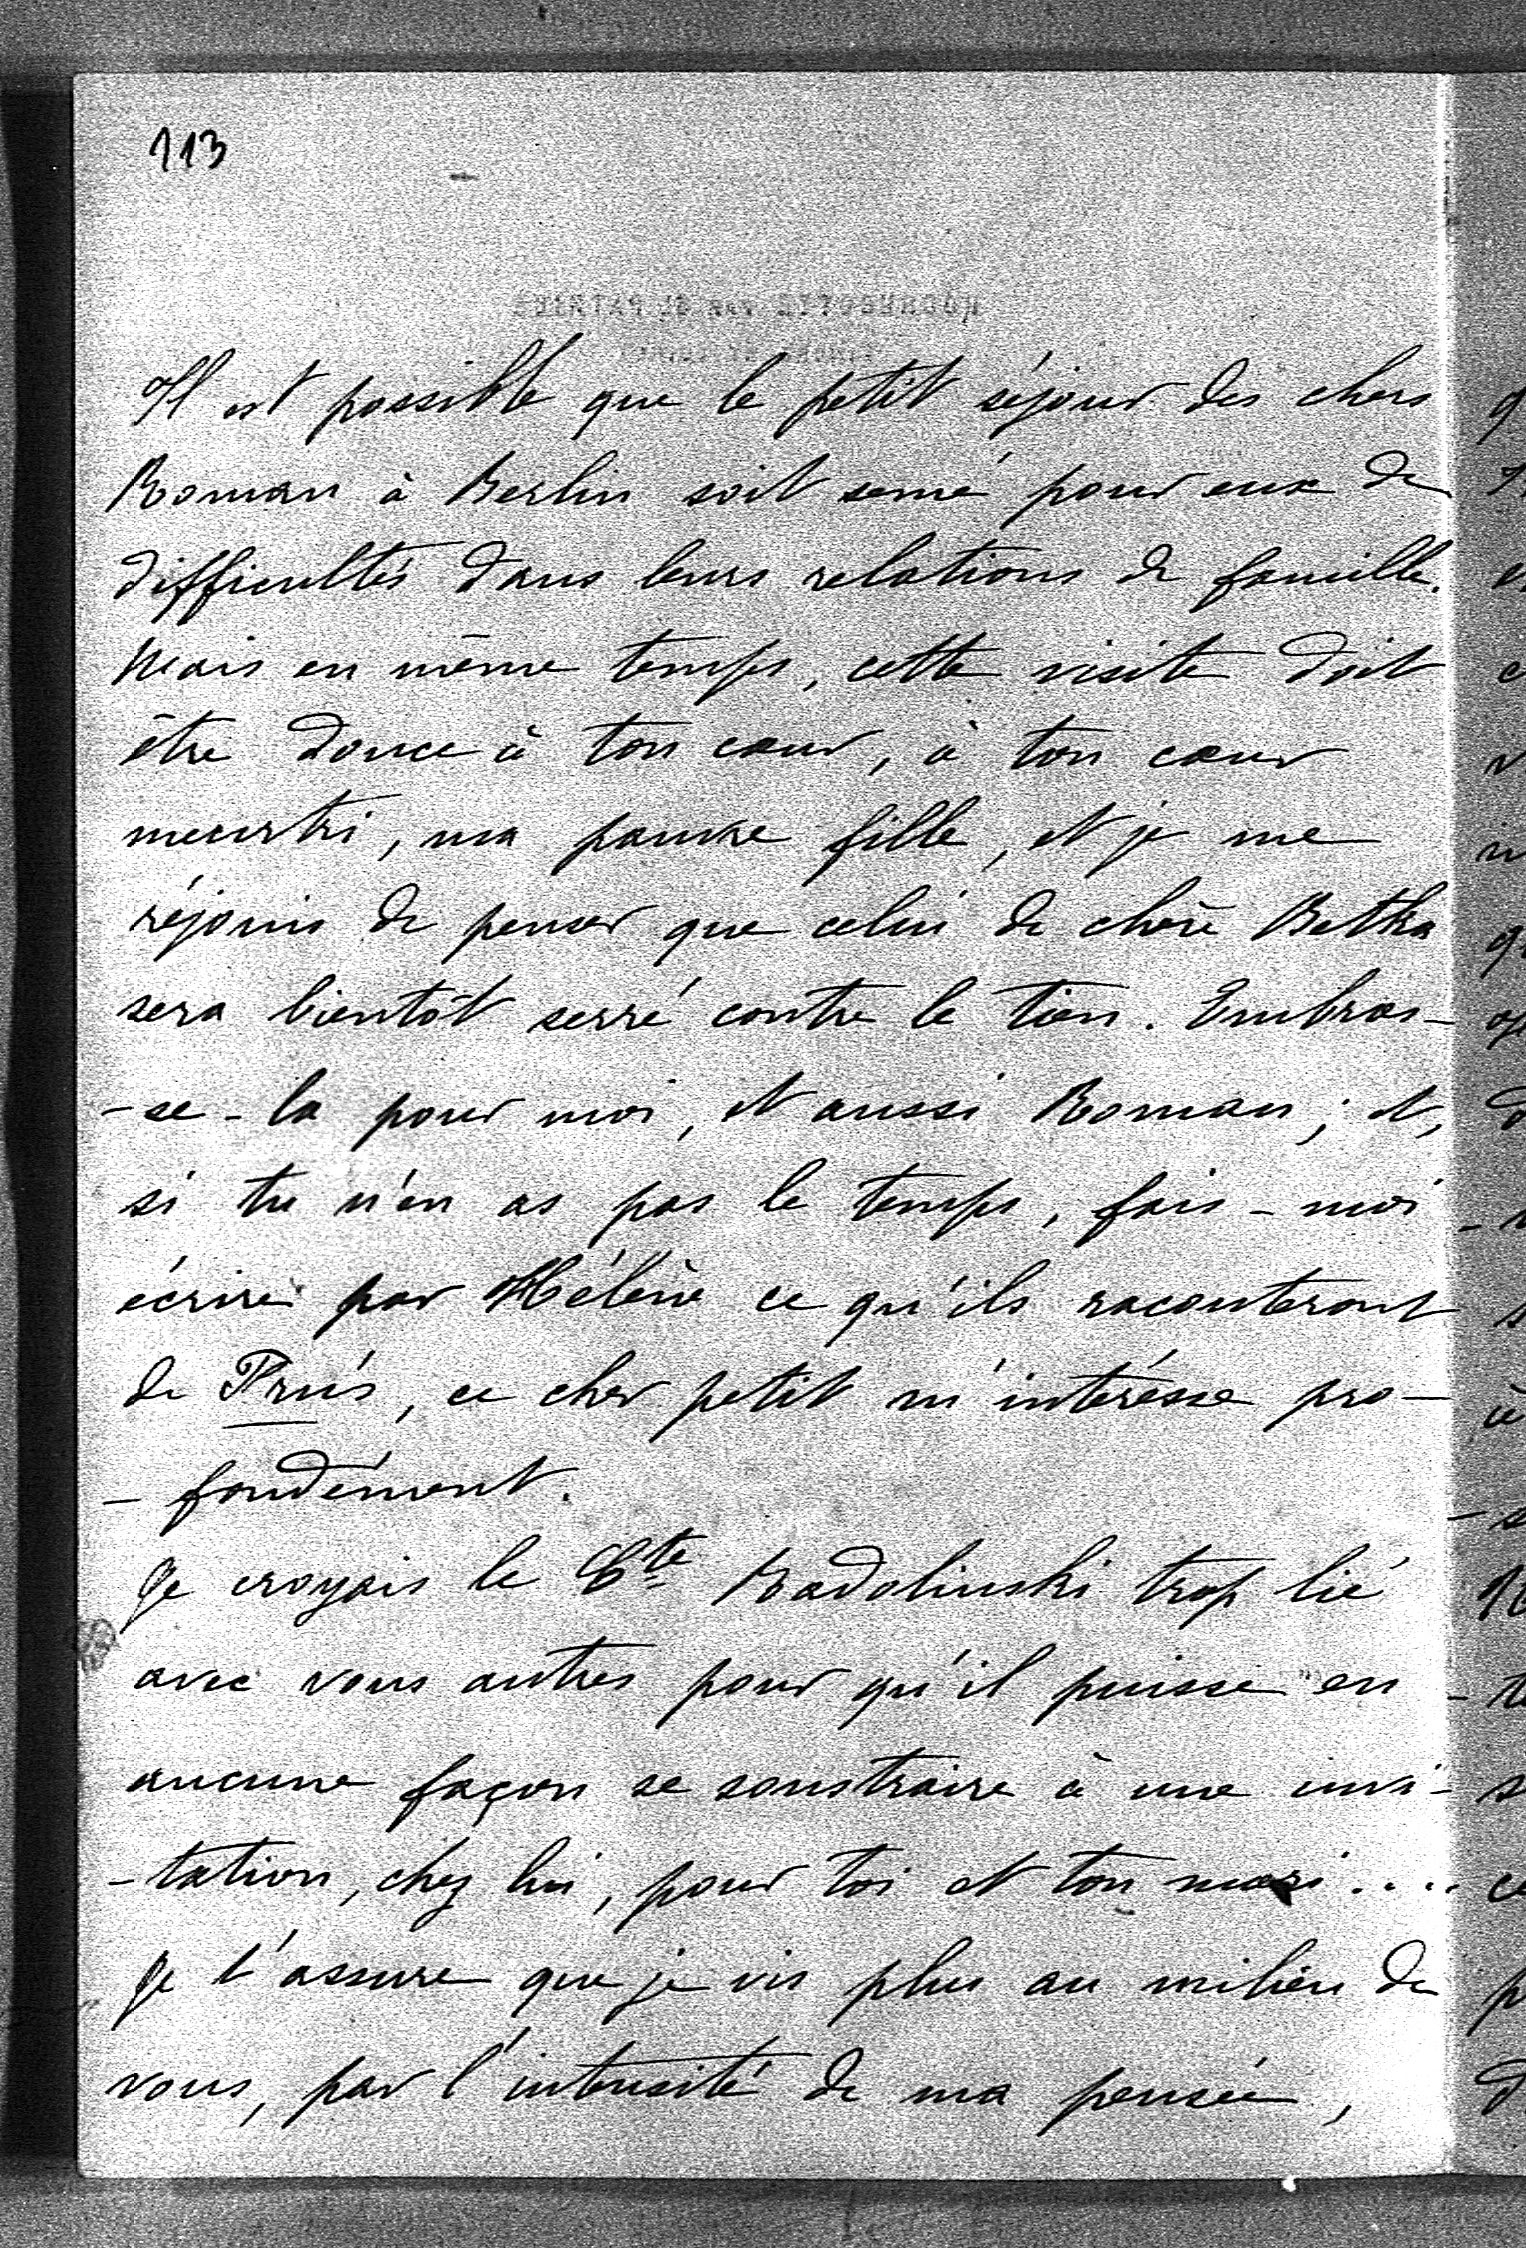 113
Il est possible que le petit séjour des chers
Roman à Berlin soit semé pour eux de
difficultés dans leurs relations de famille.
Mais en même temps, cette visite doit
être douce à ton cœur, à ton cœur
meurtri, ma pauvre fille, et je me
réjouis de penser que celui de chère Betka
sera bientôt serré contre le tien. Embras-
-se-la pour moi, et aussi Roman; et,
si tu n'en as pas le temps, fais-moi
écrire par Hélène ce qu'ils raconteront
de Prus, ce cher petit m'intéresse pro-
-fondément.
Je croyais le Cte Radolinski trop lié
avec vous autres pour qu'il puisse en
aucune façon se soustraire à une invi-
-tation, chez lui, pour toi et ton mari....
Je t'assure que je vis plus au milieu de
vous, par l'intensité de ma pensée,